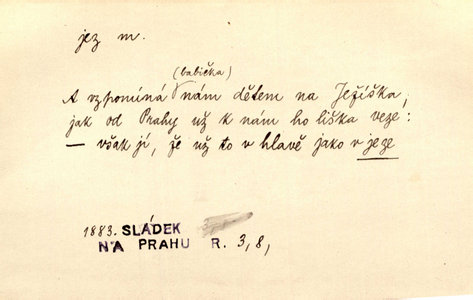 jez m.
(babička)
A vzpomíná nám dětem na Ježíška,
jak od Prahy už k nám ho liška veze:
— však jí, že už to v hlavě jako v jeze
1883. SLÁDEK
NA PRAHU R. 3,8,